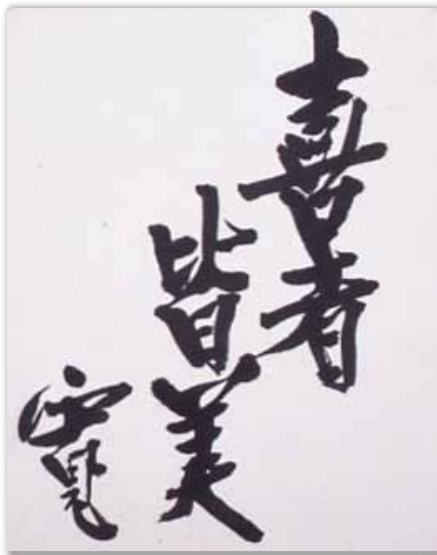 喜者
皆美
寛